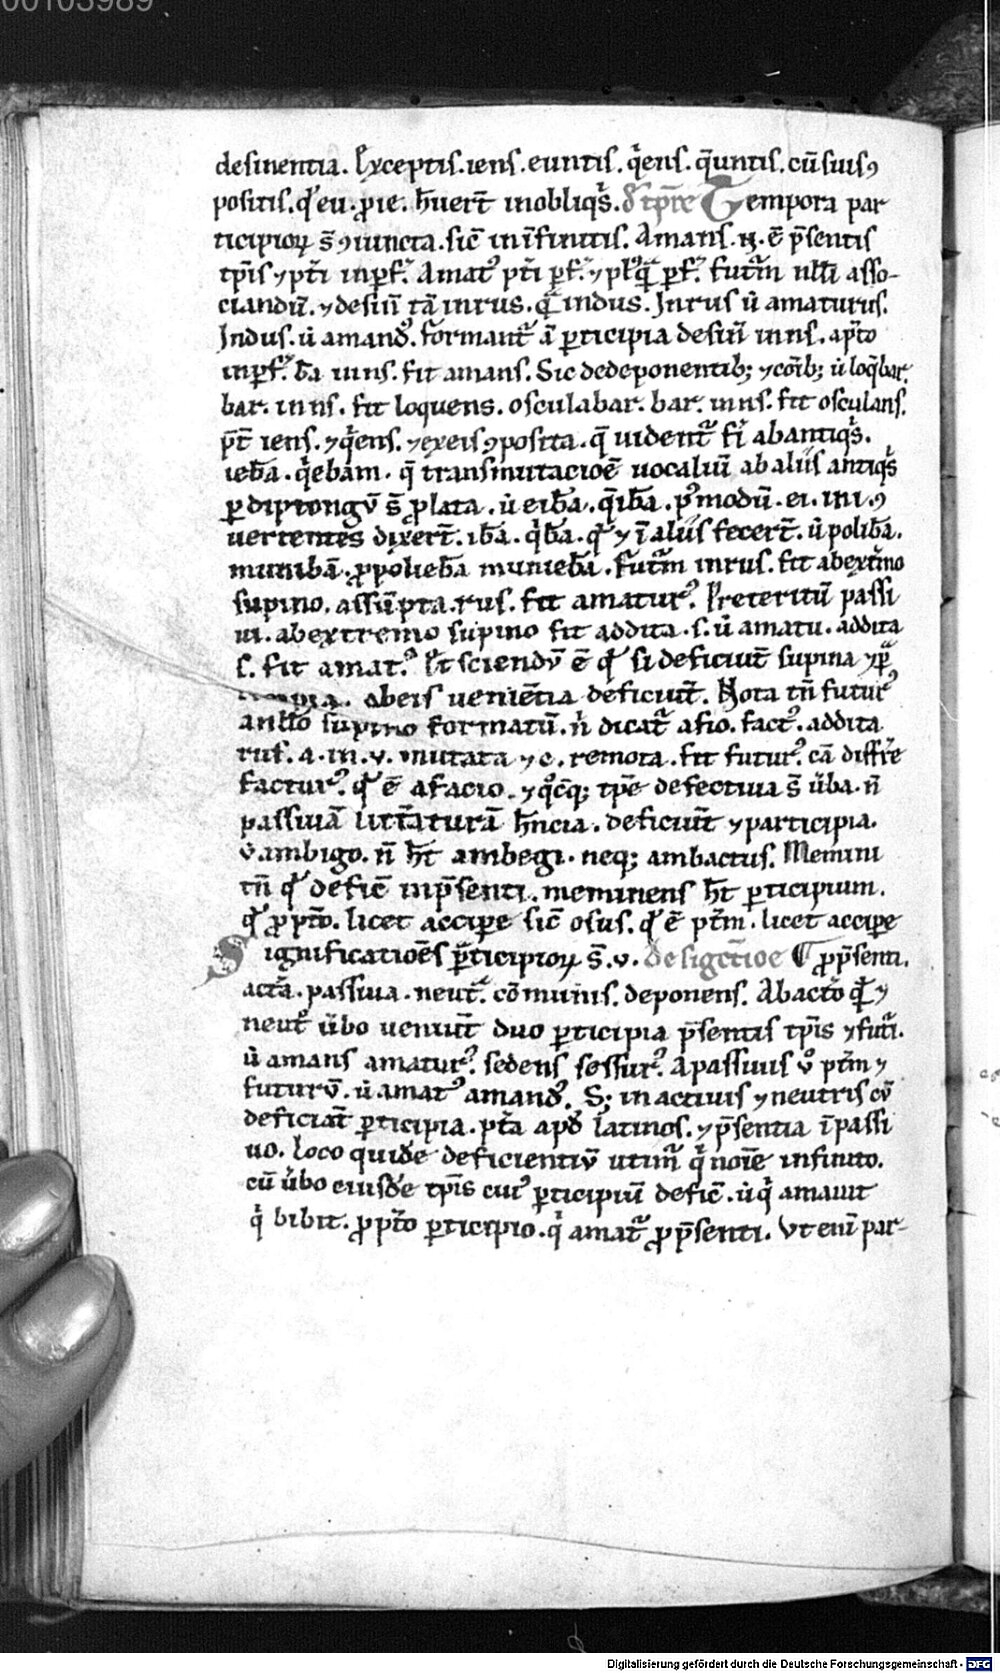 00103989
desinentia. Exceptis. iens. euntis. q̇ens. q̄untis. cū suis ꝯ
positis. qd' eu. ꝓ ie. hn̄t uert̄ in obliqs̄. de tp̄re Tempora par
ticipioꝝ s̄ ꝯiuncta. sic̄ in īfinitis. Amans. n. ē p̄sentis
tp̄is ⁊ pt̄i inꝑf. Amatꝰ pt̄i ꝑf. ⁊ plꝰq̄ ꝑf. futm̄ nll̄i asso-
ciandū. ⁊ desin̄ tā in rus. q̄ in dus. In rus ū amaturus.
In dus. ū amandꝰ. formant̄ a ꝑticipia desin̄ in ns. a p̄to
inꝑf. ba in ns. fit amans. Sic de deponentib; ⁊ cōib; ū loq̄bar.
bar. in ns. fit loquens. osculabar. bar. in ns. fit osculans.
p̄t iens. ⁊ q̇ens. ⁊ ex eis ꝯposita. q̄ uident̄ fi ab antiqs̄.
iebā. q̇ebam. q̄ transmutacioē uocaliū ab aliis antiqs̄
ꝑ diptongū s̄ ꝓlata. ū eibā. q̇ibā. pꝰmodū. ei. in i. ꝯ
uertentes dixert̄. ibā. q̇bā. qd' ⁊ ī aliis fecert̄. ū polibā.
munibā. ꝓ poliebā muniebā. Futm̄ in rus. fit ab extm̄o
supino. assūpta. rus. fit amaturꝰ. Preteritū passi
ui. ab extremo supino fit addita. s. ū amatu. addita
s. fit amatꝰ. Et sciendū ē qd' si deficiūt supina ⁊ p̄
ab eis uenientia deficiūt. Nota tn̄ futurꝰ
a nllo supino formatū. n̄ dicat̄ a fio. factꝰ. addita
rus. a. in. u. mutata ⁊ c. remota. fit futurꝰ. cā diffr̄e
facturꝰ. qd' ē a facio. ⁊ qꝰcq; tp̄e defectiua s̄ ūba. n̄
passiuā litt̄aturā hn̄cia. deficiūt ⁊ participia.
ū ambigo. n̄ ht̄ ambegi. neq; ambactus. Memini
tn̄ qd' defic̄ in p̄senti. meminens ht̄ ꝑticipium.
qd' ꝓ p̄to. licet accipe sic̄ osus. qd' ē pt̄m. licet accipe
Significatioēs ꝑticipioꝝ s̄. v. de sigctioe ꝓ p̄senti.
acta. passiua. neut̄. cōmunis. deponens. Ab acto qd' ⁊
neutꝰ ūbo ueniūt duo ꝑticipia p̄sentis tp̄is ⁊ futi.
ū amans amaturꝰ. sedens sessurꝰ. A passiuis ūꝰ pt̄m ⁊
futurū. ū amatꝰ amandꝰ. S; in actiuis ⁊ neutris cū
deficiāt ꝑticipia. p̄ta apd' latinos. ⁊ p̄sentia ī passi
uo. loco quidē deficientiū utim̄ q̇ noīe infinito.
cū ūbo eiusdē tp̄is cuiꝰ ꝑticipiū defic̄. ū q̇ amauit
q̇ bibit. ꝓ p̄to ꝑticipio. q̇ amat̄ ꝓ p̄senti. Vt enī par-
Digitalisierung gefördert durch die Deutsche Forschungsgemeinschaft - DFG